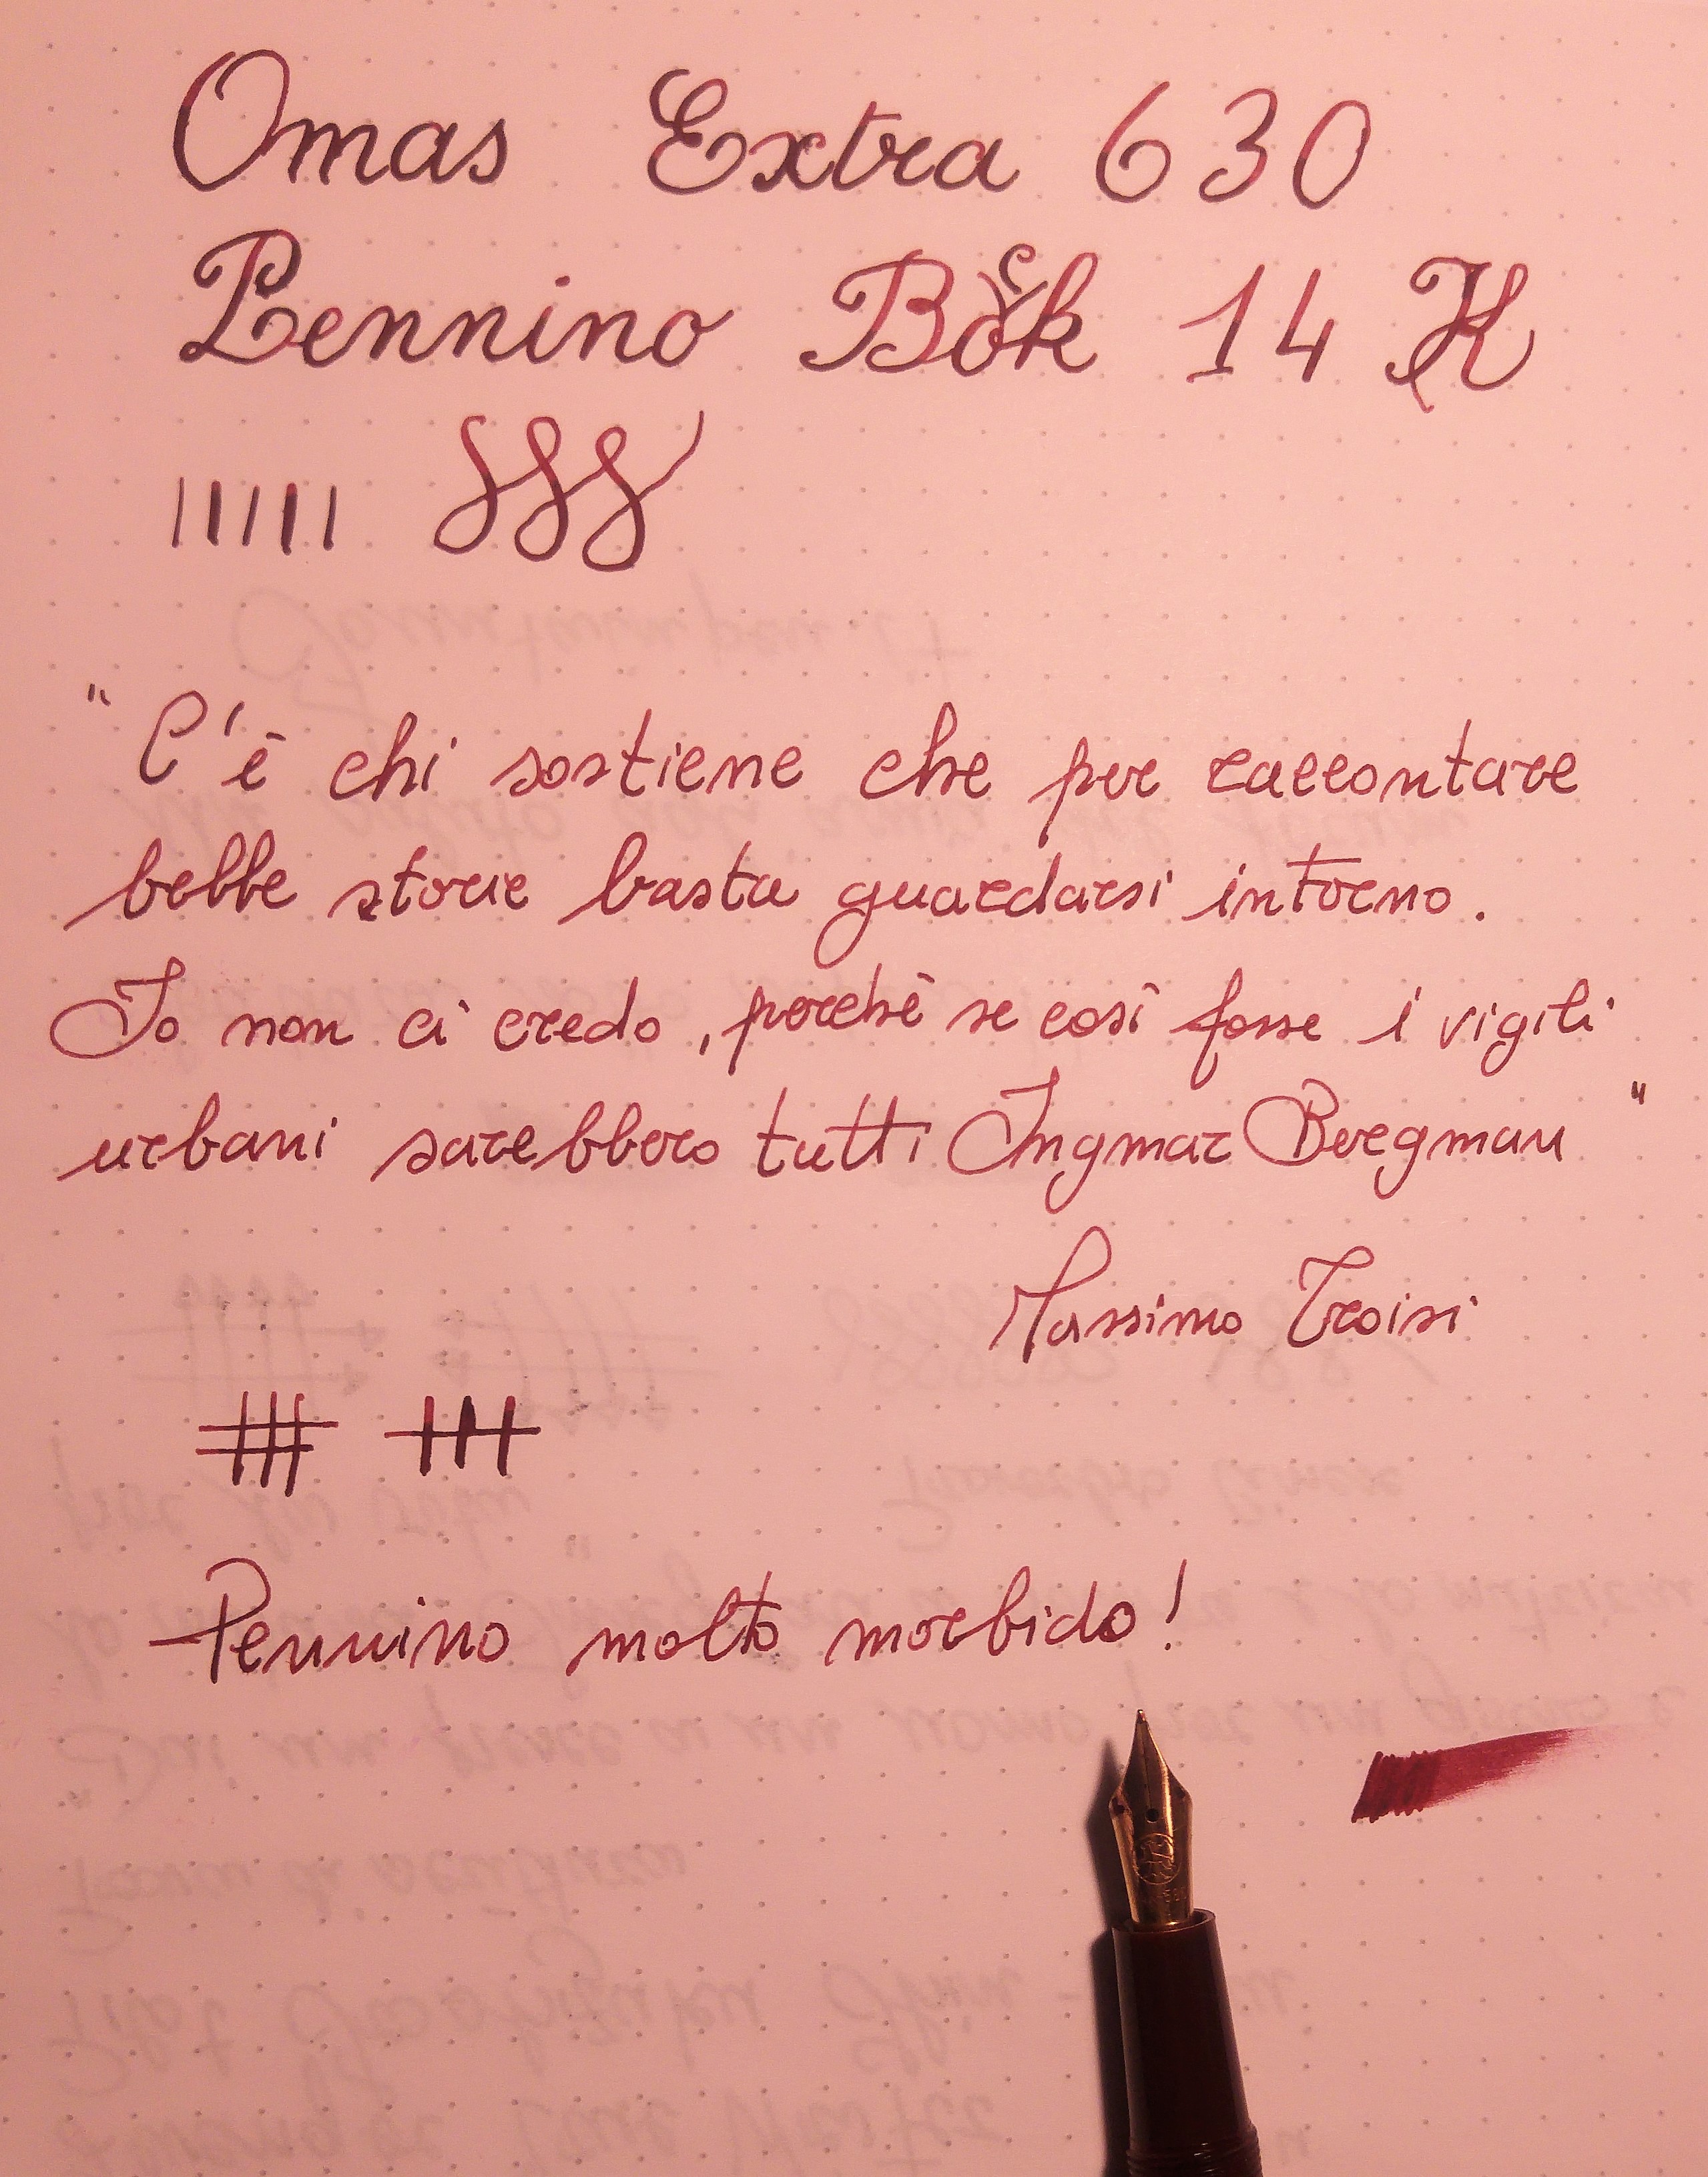 Omas Extra 630
Pennino Bock 14 K
"C'è chi sostiene che per raccontare
belle storie basta guardarsi intorno.
Io non ci credo, perchè se così fosse i vigili
urbani sarebbero tutti Ingmar Bergman"
Massimo Troisi
Pennino molto morbido!